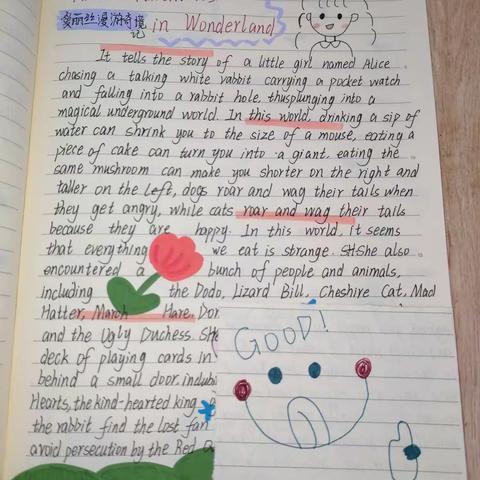 爱丽丝漫游奇境记
in Wonderland
It tells the story of a little girl named Alice
chasing a talking white rabbit carrying a pocket watch
and falling into a rabbit hole, thusplunging into a
magical underground world. In this world, drinking a sip of
water can shrink you to the size of a mouse, eating a
piece of cake can turn you into a giant. eating the
same mushroom can make you shorter on the right and
taller on the left, dogs roar and wag their tails when
they get angry, while cats roar and wag their tails
because they are happy. In this world, it seems
that everything we eat is strange. SHShe also
encountered a bunch of people and animals,
including the Dodo, Lizard Bill, Cheshire Cat, Mad
Hatter, March Hare, Dor
and the Ugly Duchess. She
deck of playing cards in
behind a small door. includi
Hearts, the kind-hearted king
the rabbit find the lost fan
avoid persecution by the Red
GOOD!